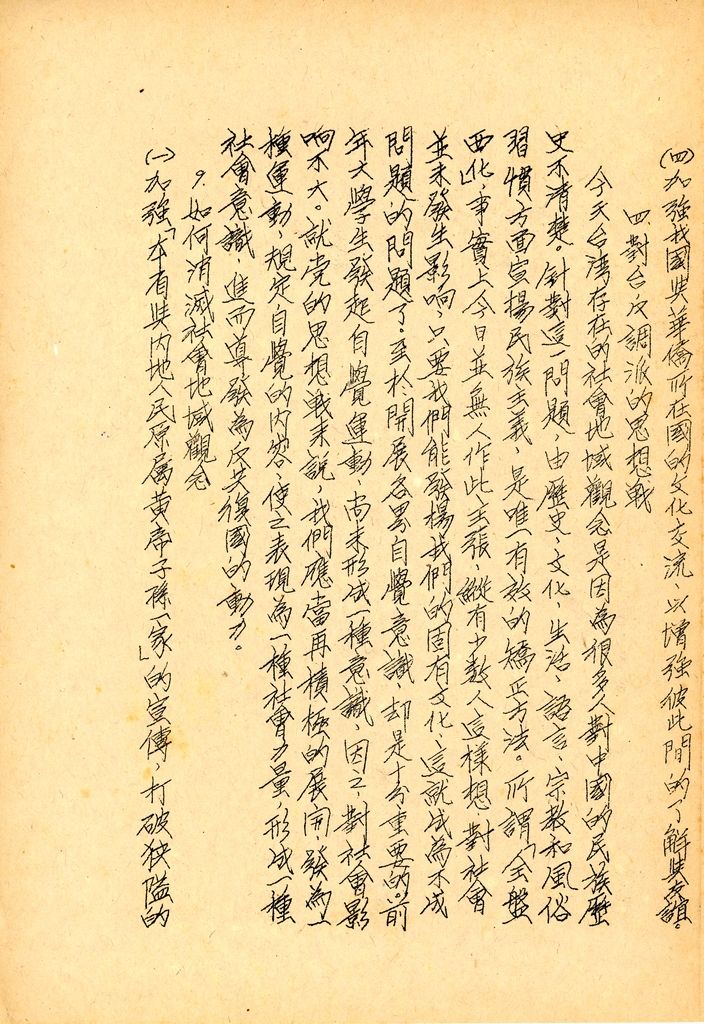 (四)加強我國與華僑所在國的文化交流,以增強彼此間的了解與友誼。
四、對台灣反調派的思想戰
今天台湾存在的社會地域觀念是因為很多人對中國的民族歷
史不清楚。針對這一問題,由歷史、文化、生活、語言、宗教和風俗
習慣方面宣揚民族主義,是唯一有效的矯正方法。所謂「全盤
西化」,事實上今日並無人作此主張,縱有少数人這樣想,對社會
並未發生影响,只要我們能發揚我們的固有文化,這就成為不成
問題的問題了。至於開展各界自覺意識,却是十分重要的。前
年大學生發起自覺運動,尚未形成一種意識,因之,對社會影
响不大。就党的思想戰来説,我們應當再積極的展開,發為一
種運動,規定自覺的内容,使之表現為一種社會力量,形成一種
社會意識,進而導發為反共復國的動力。
9.如何消滅社會地域觀念
(一)加強「本省與内地人民原屬黄帝子孫一家」的宣傳,打破狹隘的